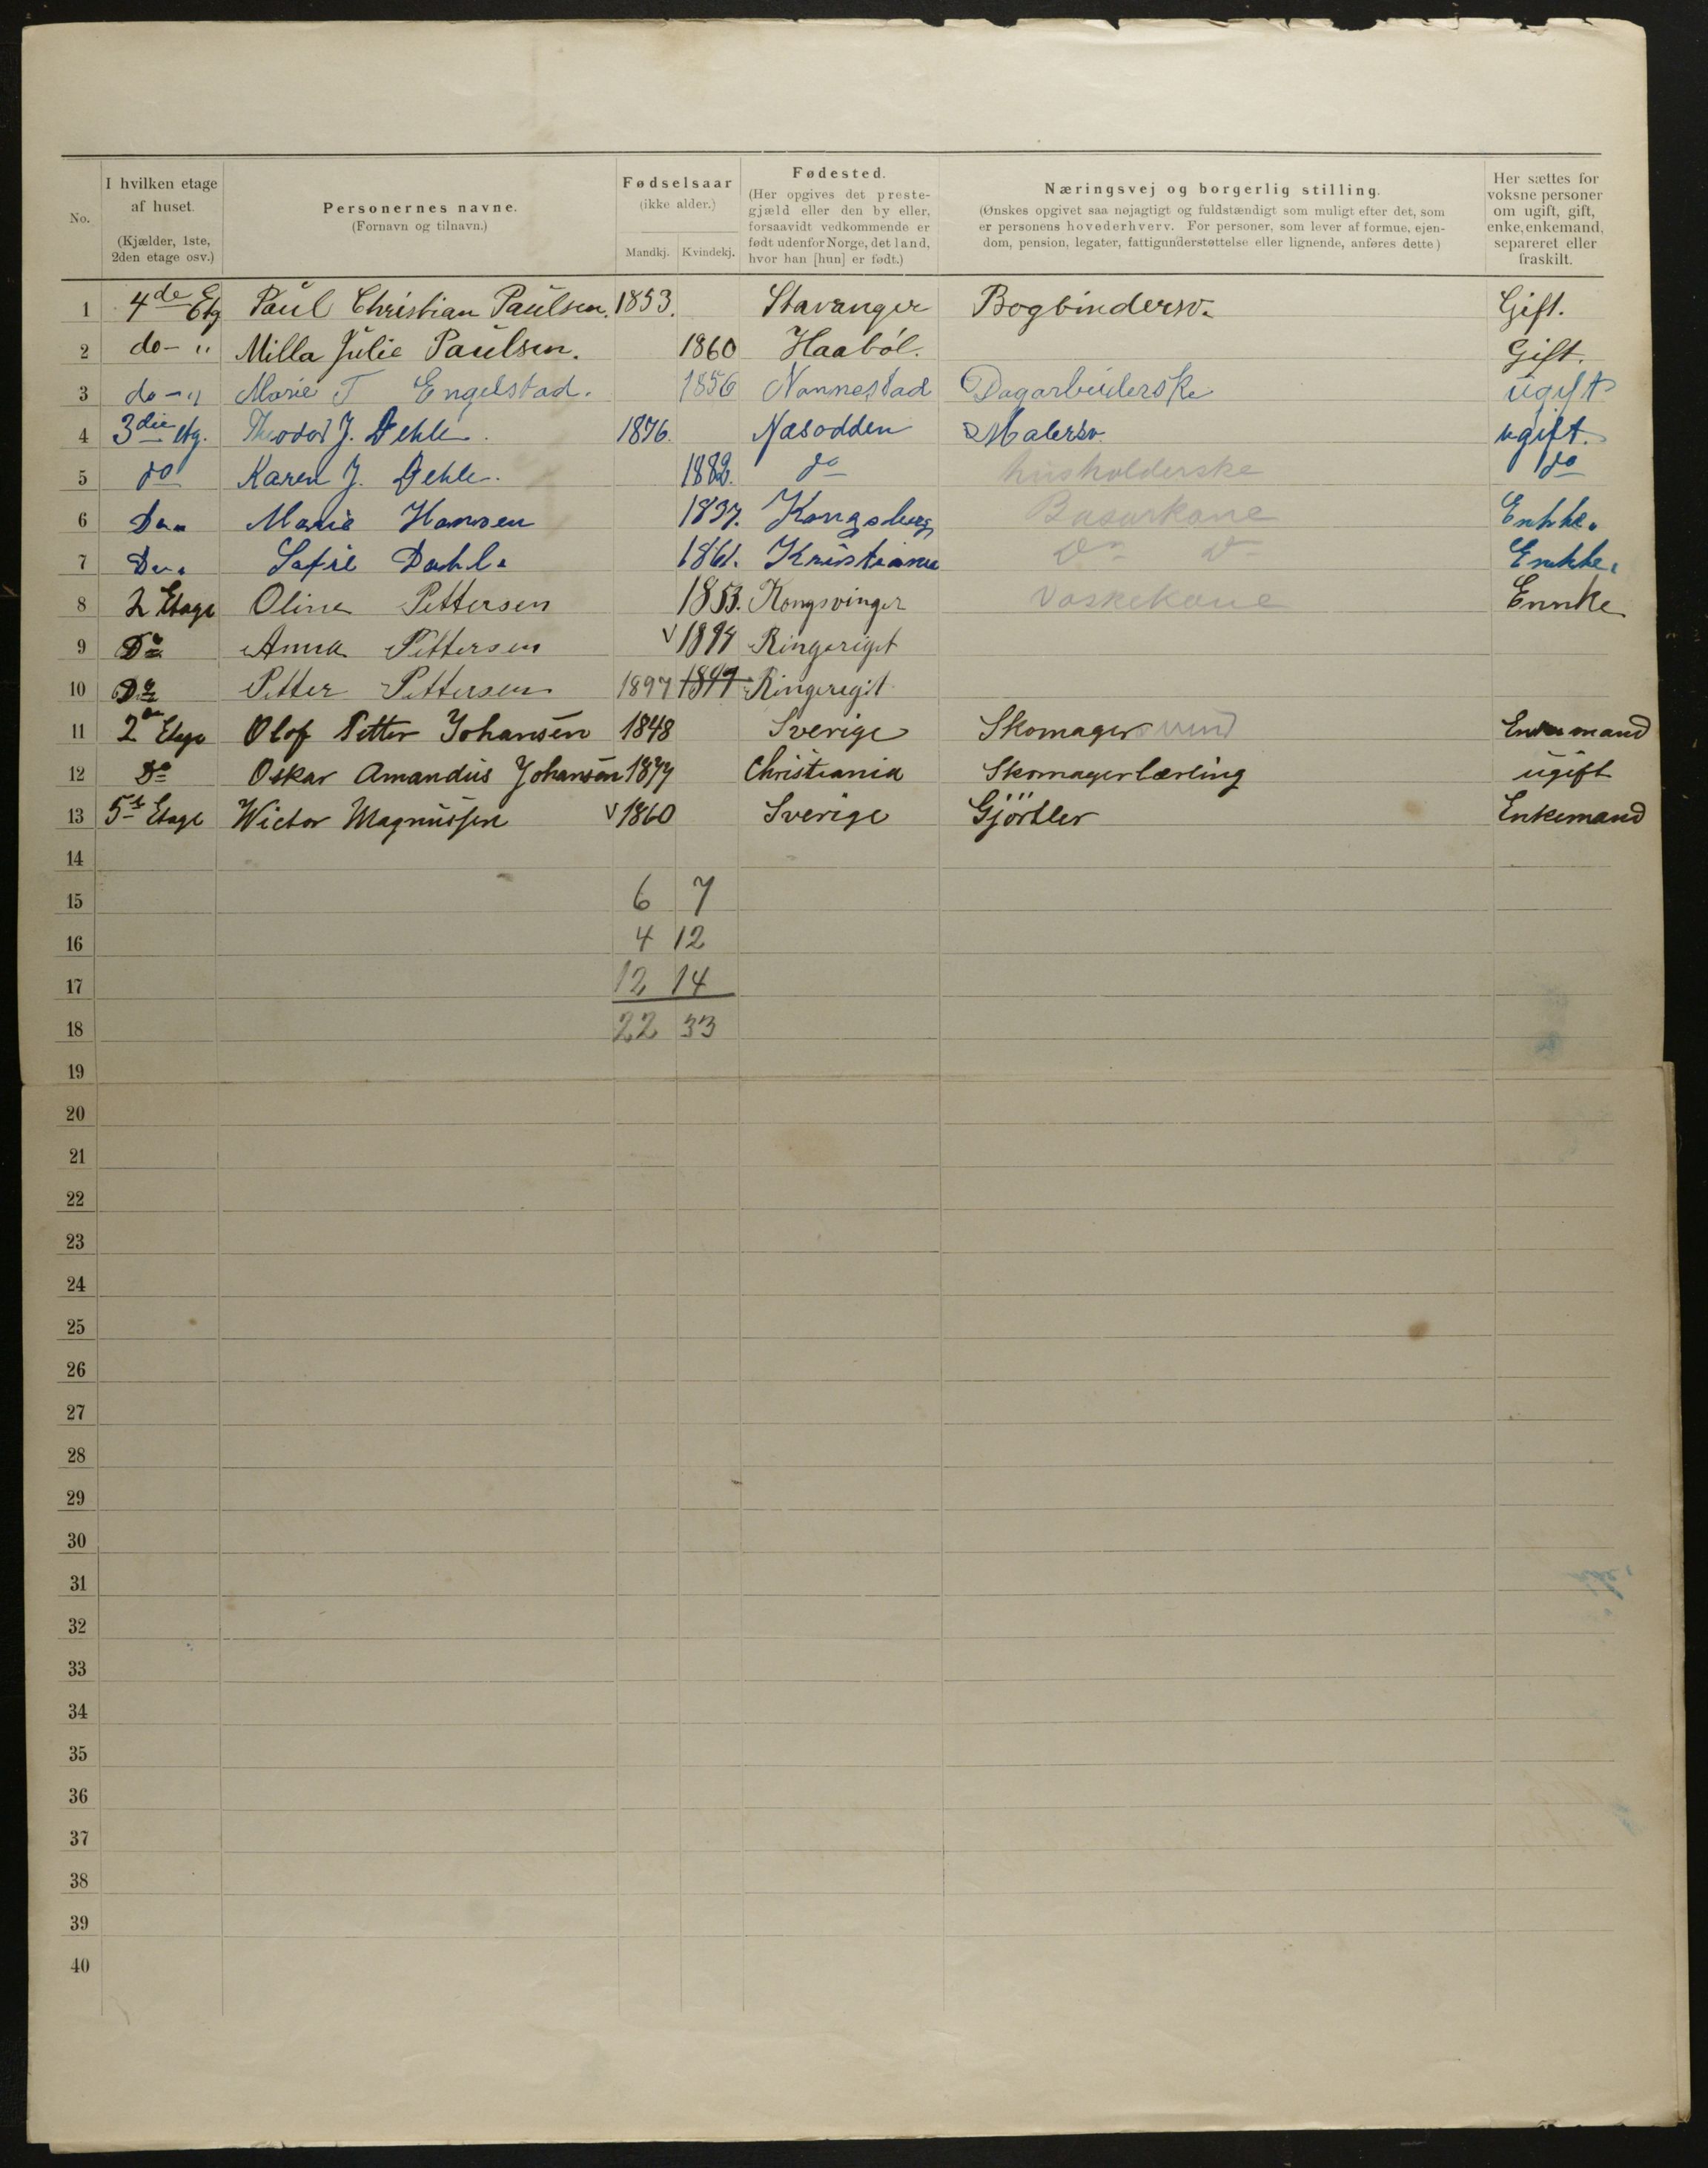 No.
I hvilken etage af huset. (Kjælder, 1ste, 2den etage osv.)
Personernes navne. (Fornavn og tilnavn.)
Fødselsaar (ikke alder.) Mandkj. Kvindekj.
Fødested. (Her opgives det prestegjæld eller den by eller, forsaavidt vedkommende er født udenfor Norge, det land, hvor han [hun] er født.)
Næringsvej og borgerlig stilling. (Ønskes opgivet saa nøjagtigt og fuldstændigt som muligt efter det, som er personens hovederhverv. For personer, som lever af formue, ejendom, pension, legater, fattigunderstøttelse eller lignende, anføres dette)
Her sættes for voksne personer om ugift, gift, enke, enkemand, separeret eller fraskilt.
1 4de Etg Paul Christian Paulsen. 1853. Stavanger Bogbindersv. Gift.
2 do - " Milla Julie Paulsen. 1860 Haaböl. Gift.
3 do - " Marie T Engelstad. 1856 Nannestad Dagarbeiderske ugift
4 3die etg. Theodor J. Dehle. 1876. Næsodden Malersv. ugift.
5 do Karen J. Dehle. 1882. do husholderske do
6 Do " Marie Hansen 1837. Kongsberg Basarkone Enkke.
7 Do " Sofie Dahl. 1861. Kristiania Do Do Enkke.
8 2 Etage Oline Pettersen 1853. Kongsvinger Vaskekone Ennke
9 Do Anna Pettersen √ 1894 Ringeriget
10 Do Petter Pettersen 1897 1897 Ringeriget
11 2den Etage Olof Petter Johansen 1848 Sverige Skomagersvend Enkemand
12 Do Oskar Amandus Johansen 1877 Christiania Skomagerlærling ugift
13 5te Etage Wictor Magnussen √ 1860 Sverige Gjörtler Enkemand
14
15 6 7
16 4 12
17 12 14
18 22 33
19
20
21
22
23
24
25
26
27
28
29
30
31
32
33
34
35
36
37
38
39
40